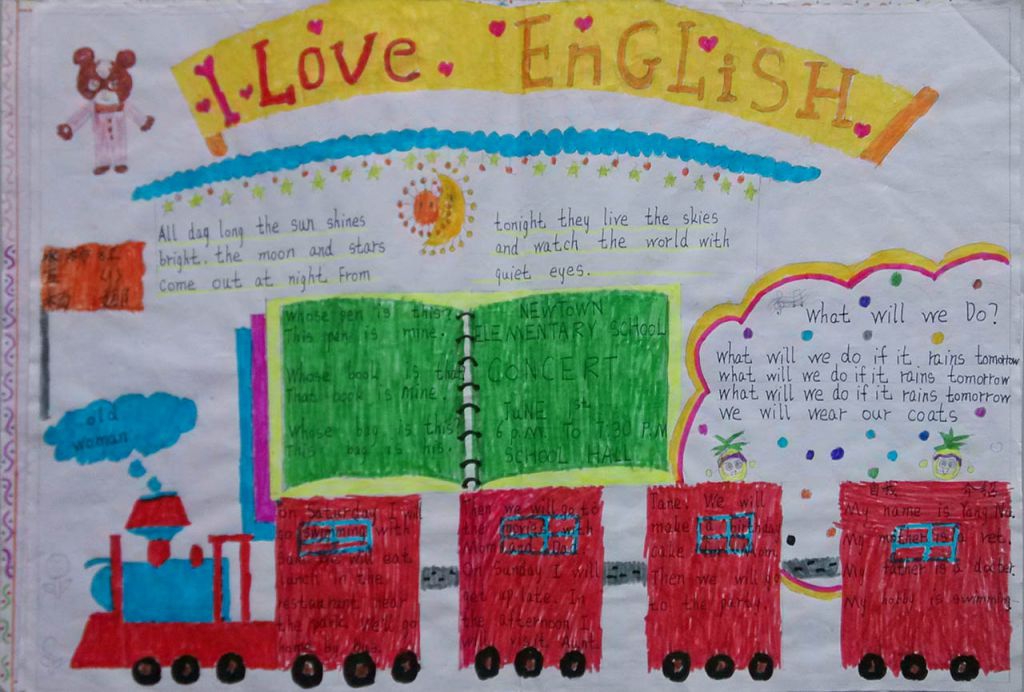 I Love EnGLiSH
All day long the sun shines
bright. the moon and stars
come out at night From
tonight they live the skies
and watch the world with
quiet eyes.
whose pen is this?
This pen is mine.
Whose book is that
That book is mine.
whose bag is this?
This bag is his.
NEWTOWN
ELEMENTARY SCHOOL
CONCERT
JUNE 1st
6 p.M. To 7:30 P.M
SCHOOL HALL
What will we Do?
what will we do if it rains tomorrow
what will we do if it rains tomorrow
what will we do if it rains tomorrow
we will wear our coats
old
woman
on Saturday I will
go swimming with
Sam. We will eat
lunch in the
restaurant near
the park. We'll go
home by bus.
Then we will go to
the movies with
Mom and Dad
On Sunday I will
get up late. In
the afternoon I
will visit Aunt
Jane. We will
make a birthday
cake Mom
Then we will go
to the party.
自我 介绍
My name is Yang
My mother is a vet.
My father is a docter.
My hobby is swimming